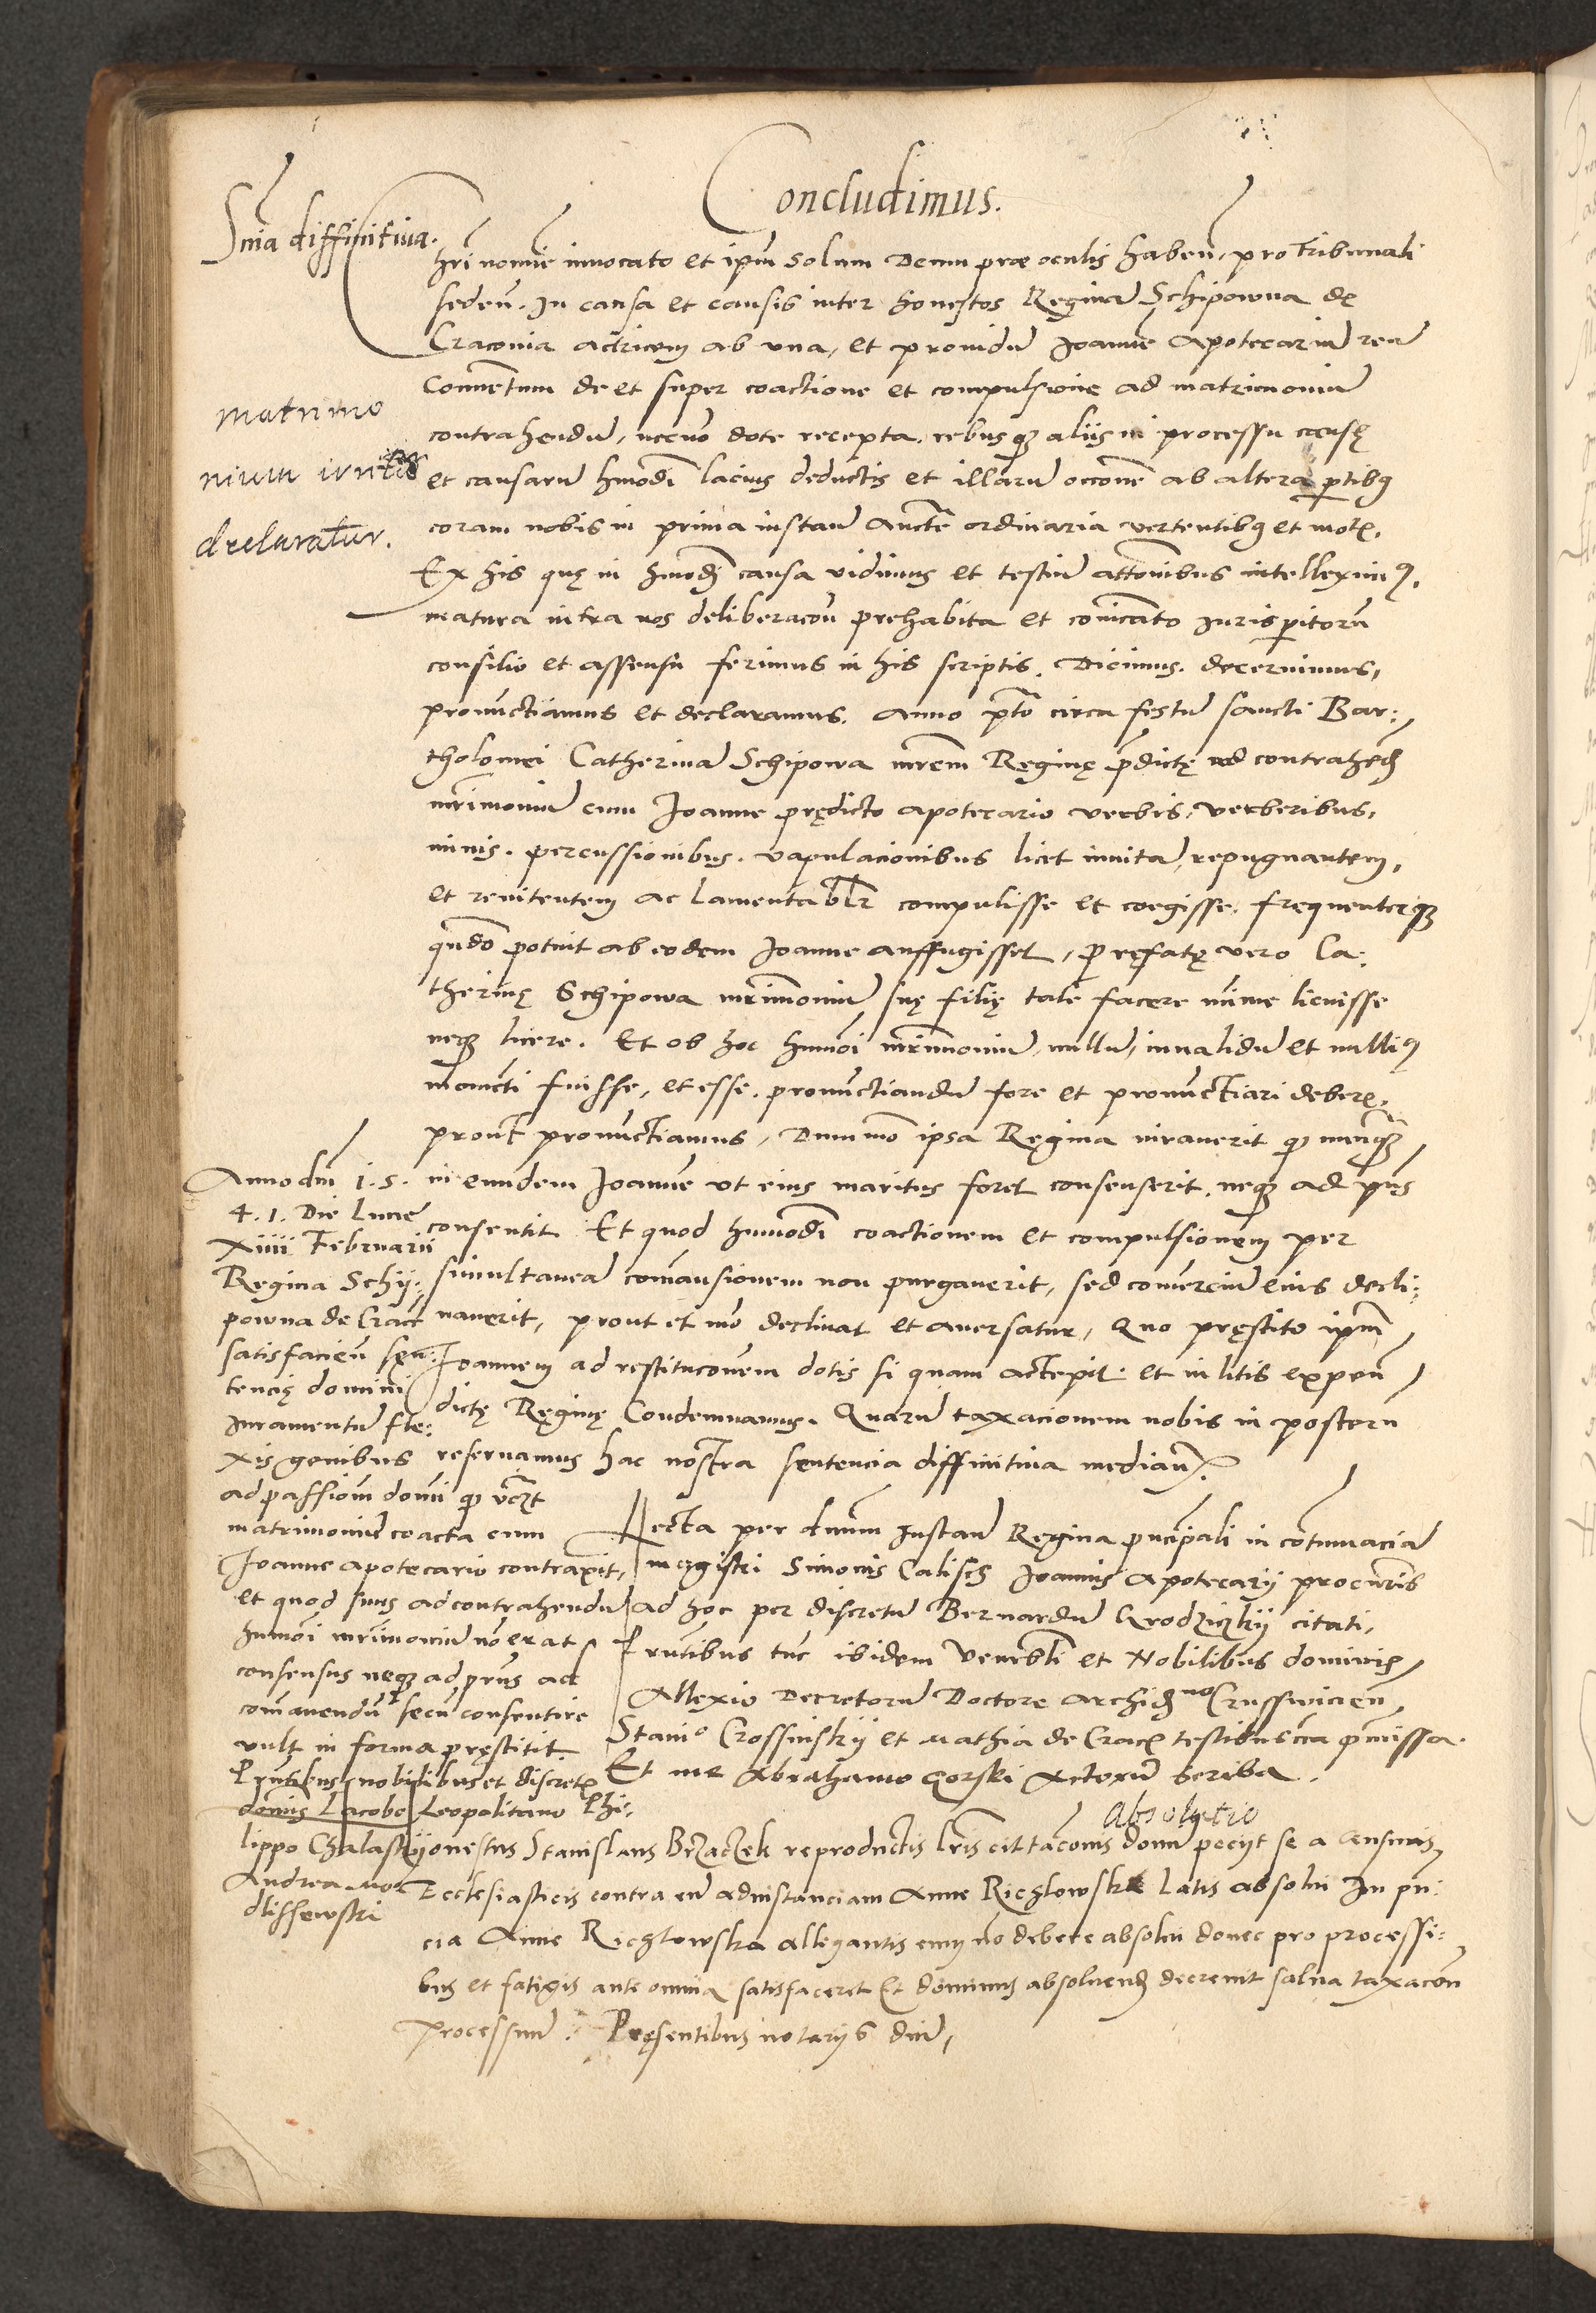 Concludimus.
Snia diffinitiva.
Chri nomine invocato et ipm solum Deum præ oculis haben, pro Tribunali
seden. In causa et causis inter honestos Reginā Schipowna de
Cracovia actricem ab una, et providū Joannē Apotecariū reū
Conventum de et super coactione et compulsione ad matrimoniū
contrahendū, necnō dote recepta, rebusq3 aliis in processu causę
et causarū hmodi lacius deductis et illarū occōne ab altera ptibq
coram nobis in prima instan Aucte ordinaria vertentibq et mot.
Ex his quę in hmodi causa vidimus et testiū attōnibus intelleximq,
matura intra nos deliberacōn prehabita et cōmicato Jurisperitorū
consilio et assensu ferimus in his scriptis. Dicimus. decernimus,
pronūctiamus et declaramus. Anno pto circa festū sancti Bar:
tholomei Catherinā Schipowa mrem Reginę pdictę ad contrahed
mrimoniū cum Joanne prędicto apotecario verbis, verberibus,
minis. percussionibus. vapulacionibus licet invitā, repugnantem,
et renitentem ac lamentablr compulisse et coegisse. frequenterq3
qndo potuit ab eodem Joanne auffugisset, pręfatę vero Ca:
therinę Schipowa mrimoniū suę filię tale facere minime licuisse
neq3 licere. Et ob hoc hmmoi mrimoniū, nullū, invalidū et nulliq
momēti fuisse, et esse. pronūctiandū fore et pronūctiari debere,
prout pronūctiamus, Dummō ipsa Regina iuraverit q nunq3
in eundem Joannē ut eius maritus foret consenserit. neq3 ad pns
consentit Et quod hmmodi coactionem et compulsionem per
simultaneā comansionem non purgaverit, sed comerciū eius decli:
naverit, prout et mō declinat et aversatur, Quo pręstito ipm
Joannem ad restitucōnem dotis si quam accepit. et in litis expen
dictę Reginę Condemnamus. Quarū taxacionem nobis in posterū
reservamus hac nostra sentencia diffinitiva median.
matrimo
nium irritū
declaratur.
Anno dni 1.5.
4.1. Die Lunę
xiiii Februarii
Regina Schy:
powna de Crac
satisfacien sen:
tencię domini
Juramentū fle:
xis genibus
ad passiom domi q
matrimoniū coacta cum
Joanne apotecario contraxit,
et quod suus ad contrahendū
hmmoi mrimoniū nō erat
consensus neq3 ad pns ad
comanendū secū consentire
vult in forma pręstitit.
Pntibus nobilibus et discret
domis Jacobo Leopolitano Phi:
lippo Chalasky
Andrea Mo
dlissewski
Lecta per dnum Instan Regina pncipali in cotumacia
magistri Simonis Calisch Joannis Apotecarii procuris
ad hoc per discretū Bernardū Grodziczky citati,
Pntibus tūc ibidem Venerbli et Nobilibus dominis
Allexio Decretorū Doctore Archid no Crusswicien
Stanio Crossinsky et Mathia de Crac testibus cca pmissa.
Et me Abrahamo Gorski Actorū scriba.
Absolutio
Honestus Stanislaus Brzaczek reproductis lris cittacōnis domi peciit se a Censuris
Ecclesiasticis contra eū ad instanciam Anne Richlowska Latis absolui In pn:
cia Anne Richlowska allegantis eum nō debere absolui donec pro processi:
bus et fatigis ante omnia satisfaceret Et dominus absoluend decrevit salva taxacōn
processuū. Pręsentibus notariis dni,